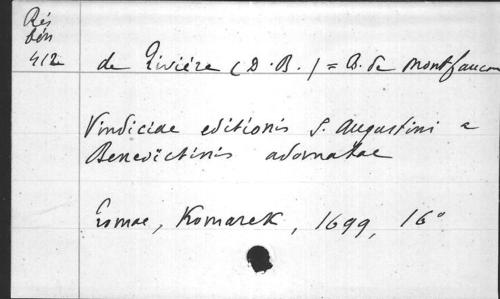 Rés
bén
412
de Rivière (D. B.) = B. de Montfaucon
Vindiciae editionis S. Augustini a
Benedictinis adornatae
Romae, Komarek, 1699, 16°